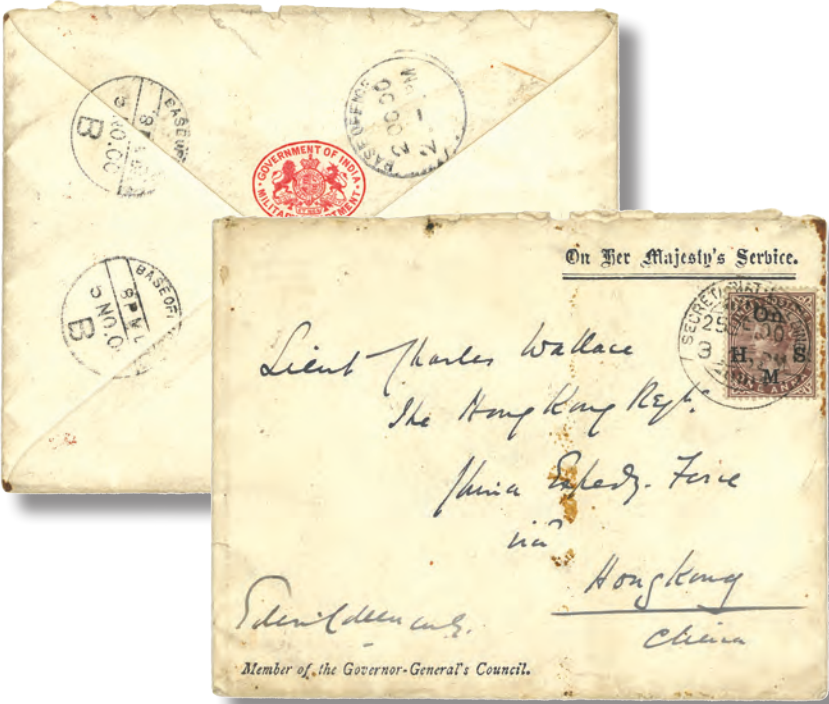 BASE OFFICE
2 OC.00
BASEOF
8 PM
5 NO.00
B
GOVERNMENT OF INDIA
MILITARY
BASEOF
8 PM
5 NO.0
B
On Her Majesty's Service.
SECRETARIAT
On
H. S.
M.
Lieut Charles Wallace
The Hong Kong Regt.
China Expedy. Force
via
Hong Kong
China
Member of the Governor-General's Council.